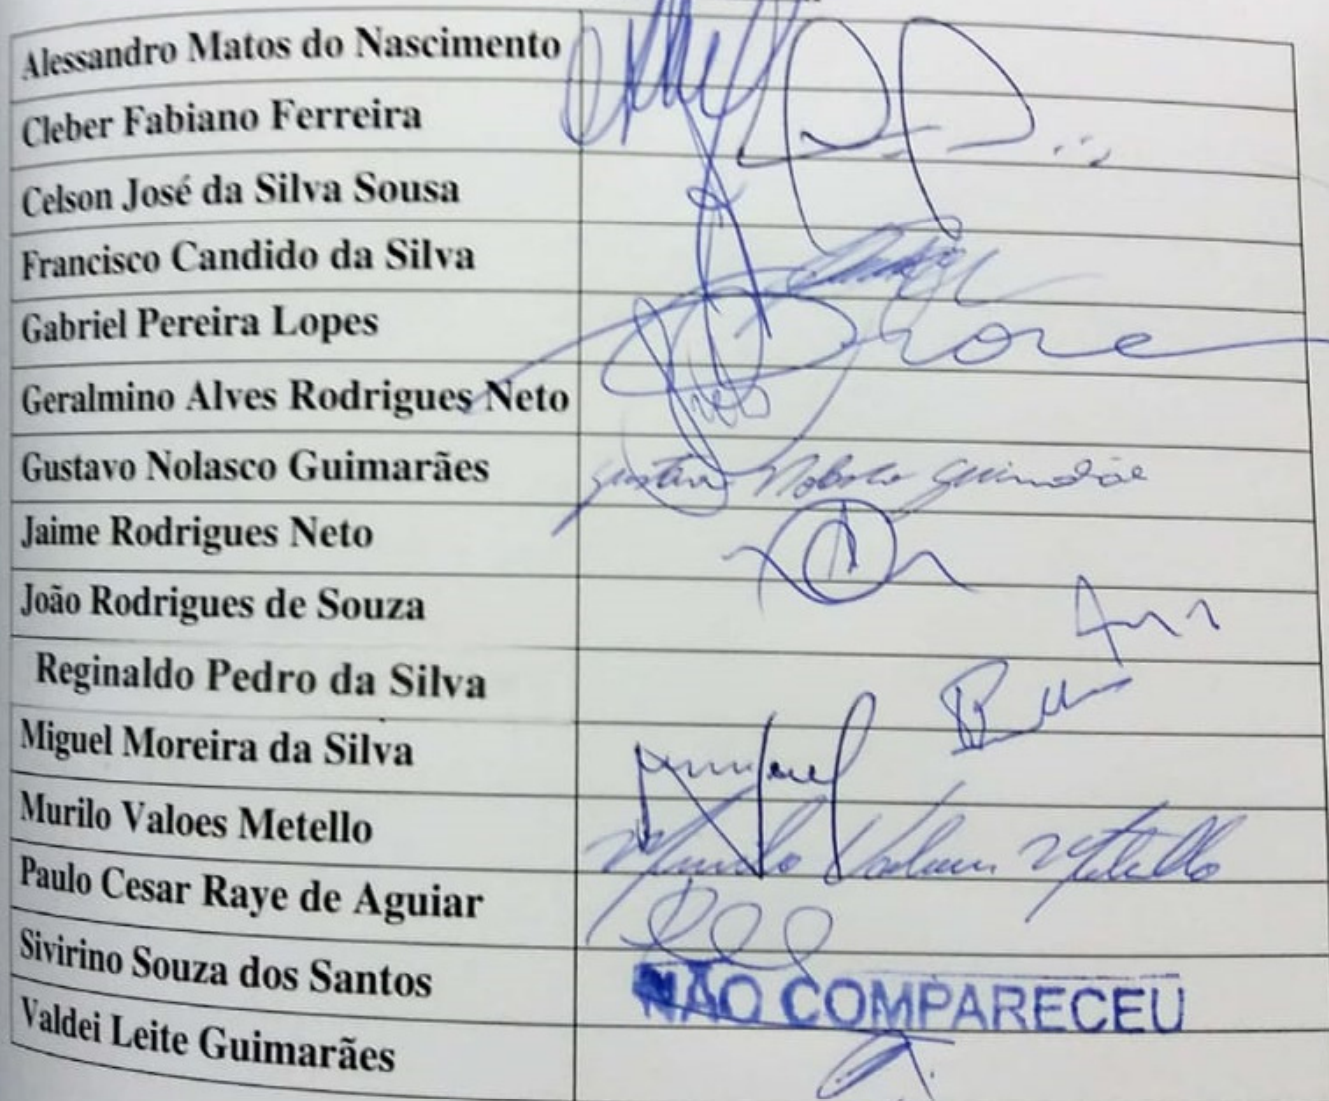 Alessandro Matos do Nascimento
Cleber Fabiano Ferreira
Celson José da Silva Sousa
Francisco Candido da Silva
Gabriel Pereira Lopes
Geralmino Alves Rodrigues Neto
Gustavo Nolasco Guimarães
Gustavo Nolasco Guimarães
Jaime Rodrigues Neto
João Rodrigues de Souza
Reginaldo Pedro da Silva
Miguel Moreira da Silva
Murilo Valoes Metello
Murilo Valoes Metello
Paulo Cesar Raye de Aguiar
Sivirino Souza dos Santos
NÃO COMPARECEU
Valdei Leite Guimarães